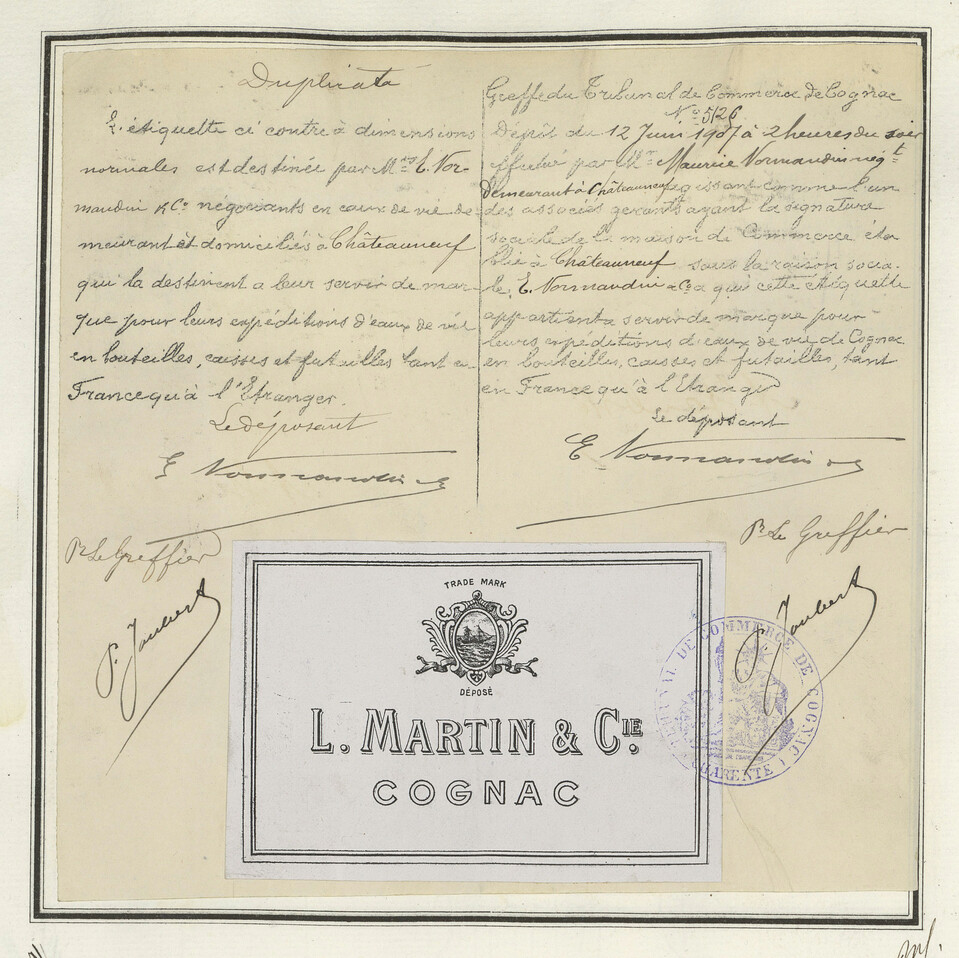 Duplicata
L'étiquette ci contre à dimensions
normales est destinée par Mrs E. Nor-
mandin & Co négociants en eaux de vie de
meurant et domiciliés à Châteauneuf
qui la destinent a leur servir de mar-
que pour leurs expéditions d'eaux de vie
en bouteilles, caisses et futailles tant en
France qu'à l'Etranger.
Le déposant
E Normandin & Co
Pr Le Greffier
P. Joubert
Greffe du Tribunal de Commerce de Cognac
No 5126
Dépôt du 12 Juin 1907 à 2 heures du soir
effectué par Mr Maurice Normandin négt
demeurant à Châteauneuf agissant comme l'un
des associés gerants ayant la signature
sociale de la maison de Commerce éta
blie à Châteauneuf sous la raison socia-
le, E. Normandin & Co a qui cette étiquette
appartient a servir de marque pour
leurs expeditions d'eaux de vie de Cognac
en bouteilles, caisses et futailles, tant
en France qu'à l'Etranger
Le déposant
E Normandin & Co
Pr Le Greffier
P. Joubert
TRADE MARK
DÉPOSÉ
L. MARTIN & CIE.
COGNAC
TRIBUNAL DE COMMERCE DE COGNAC
CHARENTE